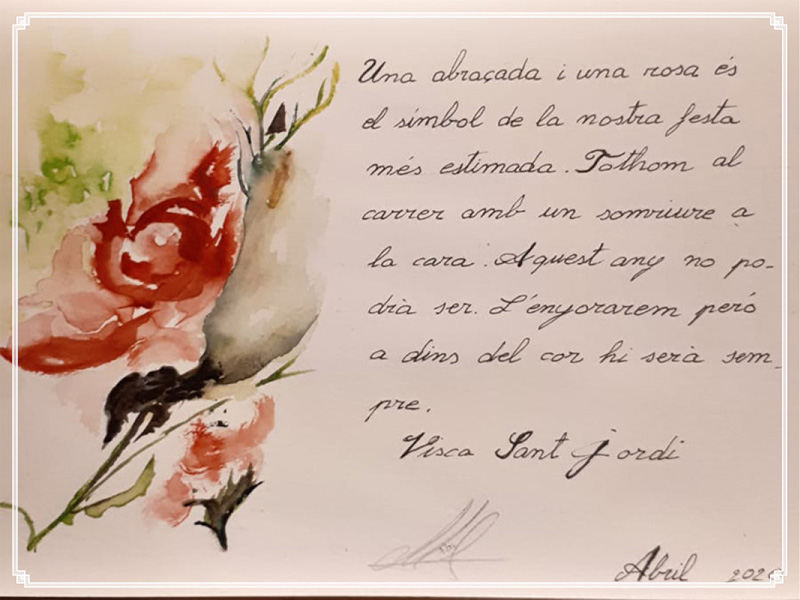 Una abraçada i una rosa és
el símbol de la nostra festa
més estimada. Tothom al
carrer amb un somriure a
la cara. Aquest any no po-
drà ser. L'enyorarem però
a dins del cor hi serà sem-
pre.
Visca Sant jordi
Abril